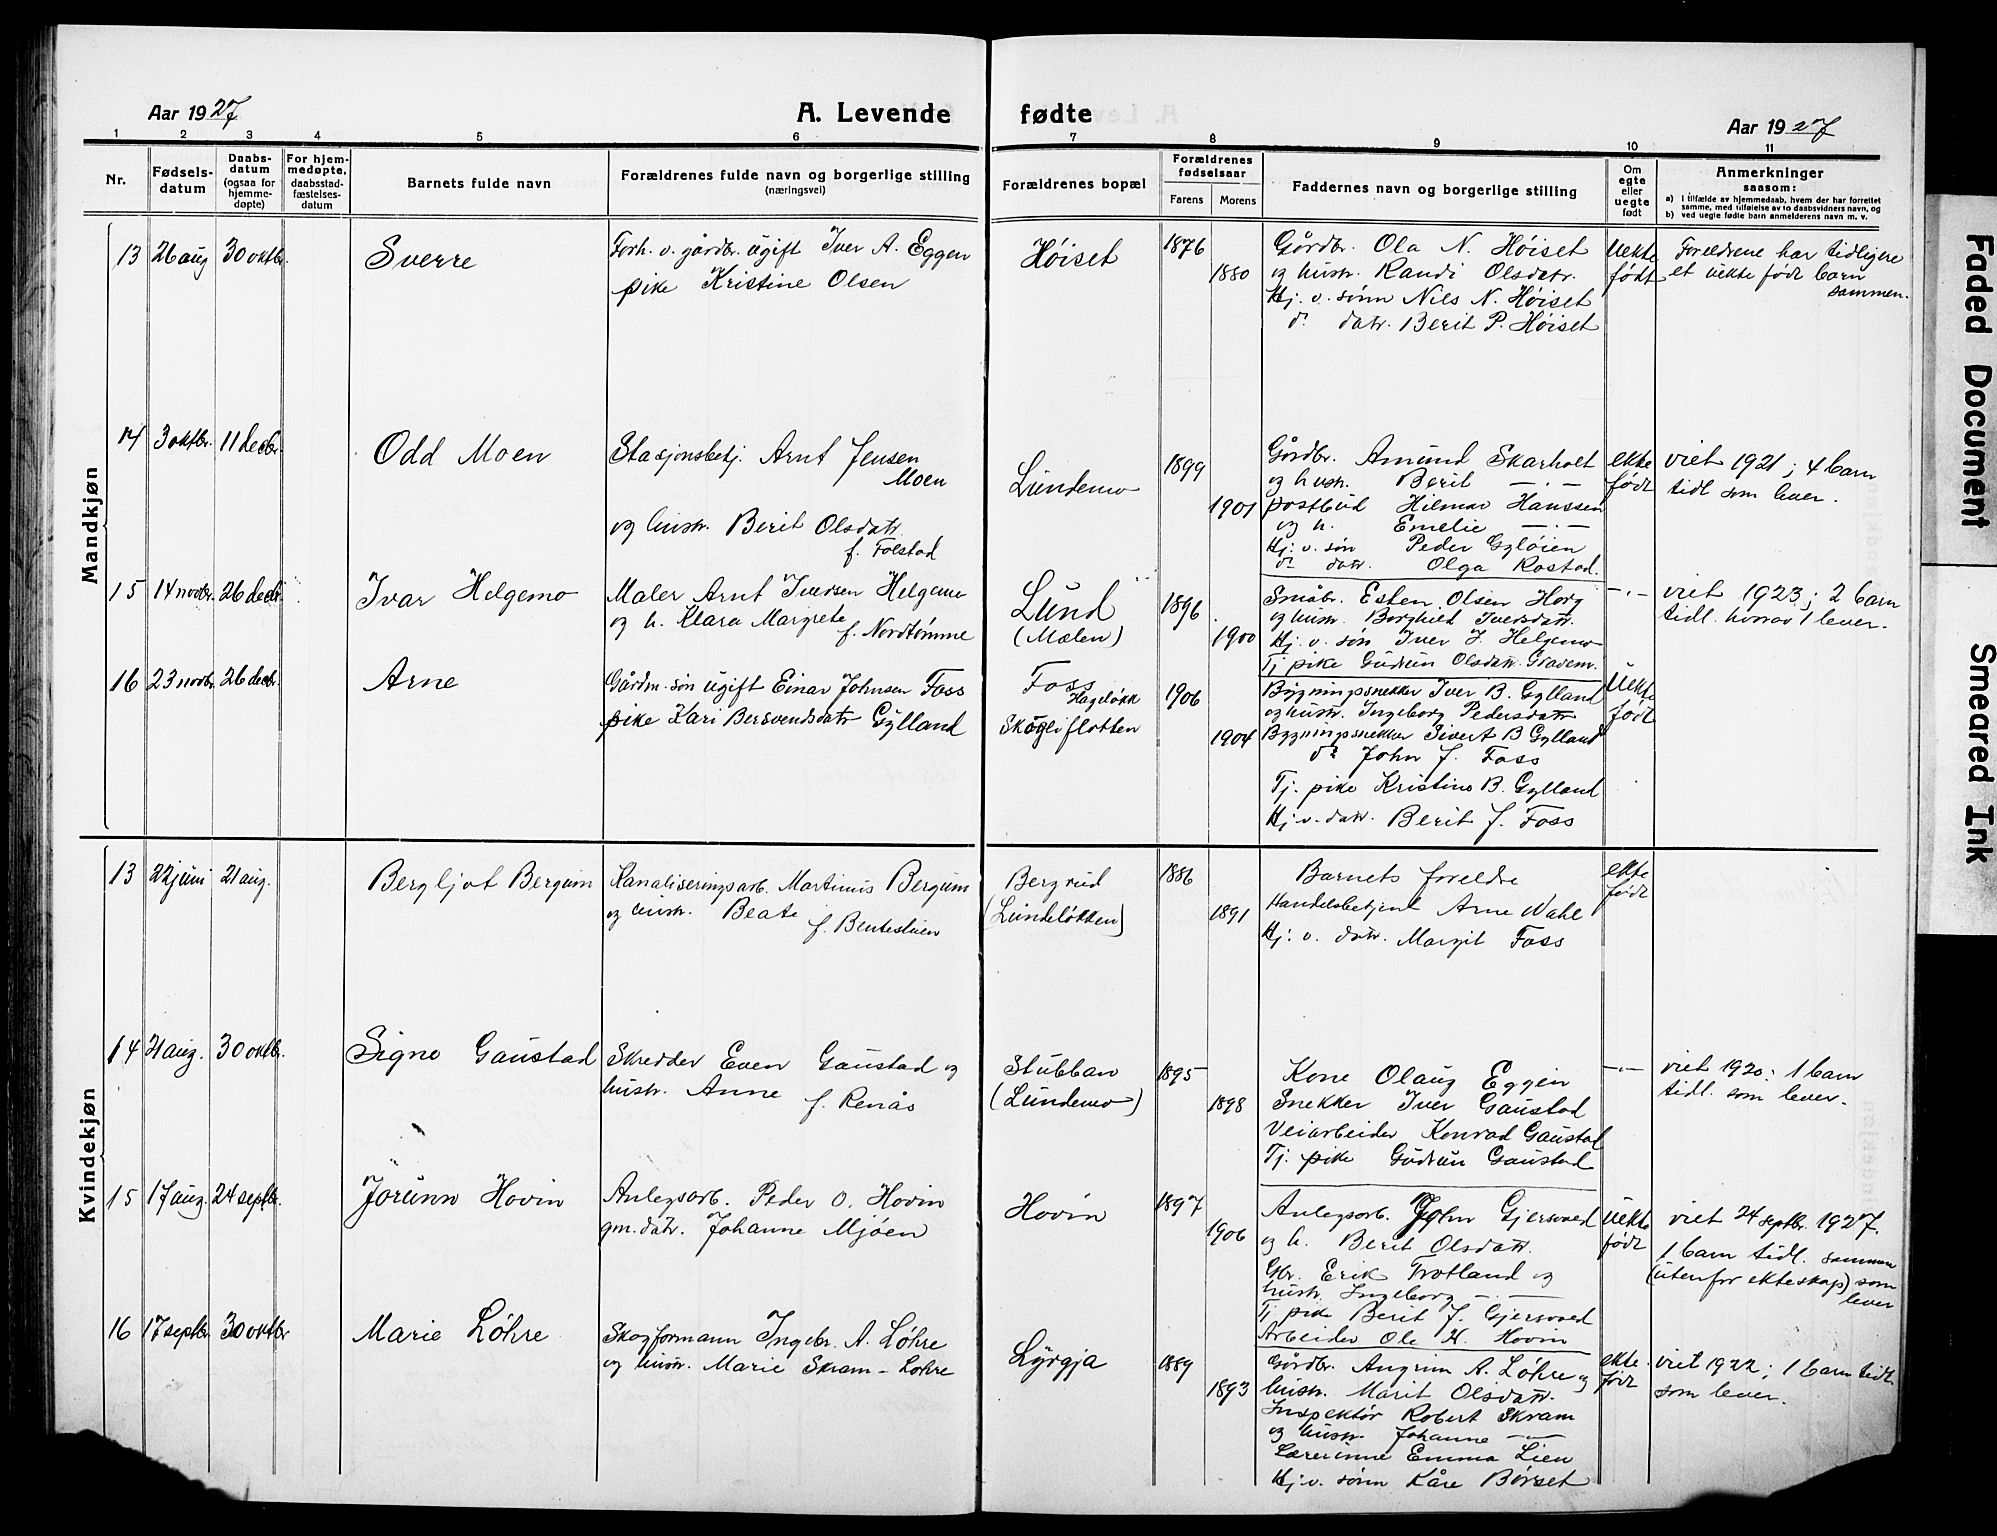 Aar 1927
A. Levende fødte
Aar 1927
1 2 3 4 5 6 7 8 9 10 11
Nr.
Fødsels-
datum
Daabs-
datum
(ogsaa for
hjemme-
døpte)
For hjem-
medøpte,
daabsstad-
fæstelses-
datum
Barnets fulde navn
Forældrenes fulde navn og borgerlige stilling
(næringsvei)
Forældrenes bopæl
Forældrenes
fødselsaar
Farens Morens
Faddernes navn og borgerlige stilling
Om
egte
eller
uegte
født
Anmerkninger
saasom:
a) i tilfælde av hjemmedaab, hvem der har forrettet
samme, med tilføielse av to daabsvidners navn, og
b) ved uegte fødte barn anmelderens navn m. v.
Mandkjøn
13 26 aug 30 oktbr. Sverre
Forh. v. gårdbr. ugift Iver A. Eggen
pike Kristine Olsen
Høiset
1876
1880
Gårdbr. Ola N. Høiset
og hustr. Randi Olsdatr.
Hj. v. sønn Nils N. Høiset
do datr. Berit P. Høiset
Uekte
født
Foreldrene har tidligere
et uekte født barn
sammen.
14 3 oktbr. 11 decbr. Odd Moen
Stasjonsbetj. Arnt Jensen
Moen
og hustr. Berit Olsdatr
f. Folstad
Lundemo
1899
1901
Gårdbr. Amund Skarholt
og hustr. Berit —.—
postbud Hilmar Hanssen
og h. Emelie —.—
Hj. v. søn Peder Gyløien
do datr. Olga Rostad.
ekte
født
viet 1921; 4 barn
tidl som lever.
15 14 novbr. 26 decbr. Ivar Helgemo
Maler Arnt Iversen Helgemo
og h. Klara Margrete
f. Nordtømme
Lund
(Mælen)
1896
1900
Småbr. Esten Olsen Horg
og hustr. Borghild Iversdatr.
Hj. v. søn Iver J. Helgemo
Tj. pike Gudrun Olsdatr. Gravem.
—.—
viet 1923; 2 barn
tidl. hvorav 1 lever.
16 23 novbr. 26 decbr. Arne
Gårdm. søn ugift Einar Johnsen Foss
pike Kari Bersvendsdatr Gylland
Foss
Hageløkk
Skogliflotten
1906
1904
Bygningssnekker Iver B. Gylland
og hustr. Ingeborg Pedersdatr
Bygningssnekker Sivert B Gylland
do John J. Foss
Tj. pike Kristine B. Gylland
Hj. v. datr. Berit J. Foss
Uekte
født
Kvindekjøn
13 22 juni 21 aug. Bergljot Bergum
Kanaliseringsarb. Martinus Bergum
og hustr. Beate
f. Bentestuen
Bergrud
(Lundeløkken)
1886
1891
Barnets foreldre
Handelsbetjent Arne Wahl
Hj. v. datr. Margit Foss
ekte
født
14 21 aug. 30 oktbr. Signe Gaustad
Skredder Even Gaustad og
hustr. Anne f. Renås
Stubban
(Lundemo)
1895
1898
Kone Olaug Eggen
Snekker Iver Gaustad
Veiarbeider Konrad Gaustad
Tj. pike Gudrun Gaustad
—.—
viet 1920: 1 barn
tidl. som lever.
15 17 aug. 24 septbr. Jorunn Hovin
Anlegsarb. Peder O. Hovin
gm. datr. Johanne Mjøen
Hovin
1897
1906
Anlegsarb. John Gjersvoed
og h. Berit Olsdatr.
Gbr. Erik Trotland og
hustr. Ingeborg —.—
Tj. pike Berit J. Gjersvoed
Arbeider Ole H. Hovin
Uekte
født
viet 24 septbr. 1927.
1 barn tidl. sammen
(utenfor ekteskap) som
lever
16 17 septbr 30 oktbr Marie Løhre
Skogformann Ingebr. A. Løhre
og hustr. Marie Skram-Løhre
Lyrgja
1889
1893
Gårdbr. Angrim A. Løhre og
hustr. Marit Olsdatr.
Inspektør Robert Skram
og hustr. Johanne —.—
Lærerinne Emma Lien
Hj. v. sønn Kåre Børset
ekte
født
viet 1922; 1 barn tidl.
som lever.
Faded Document
Smeared Ink